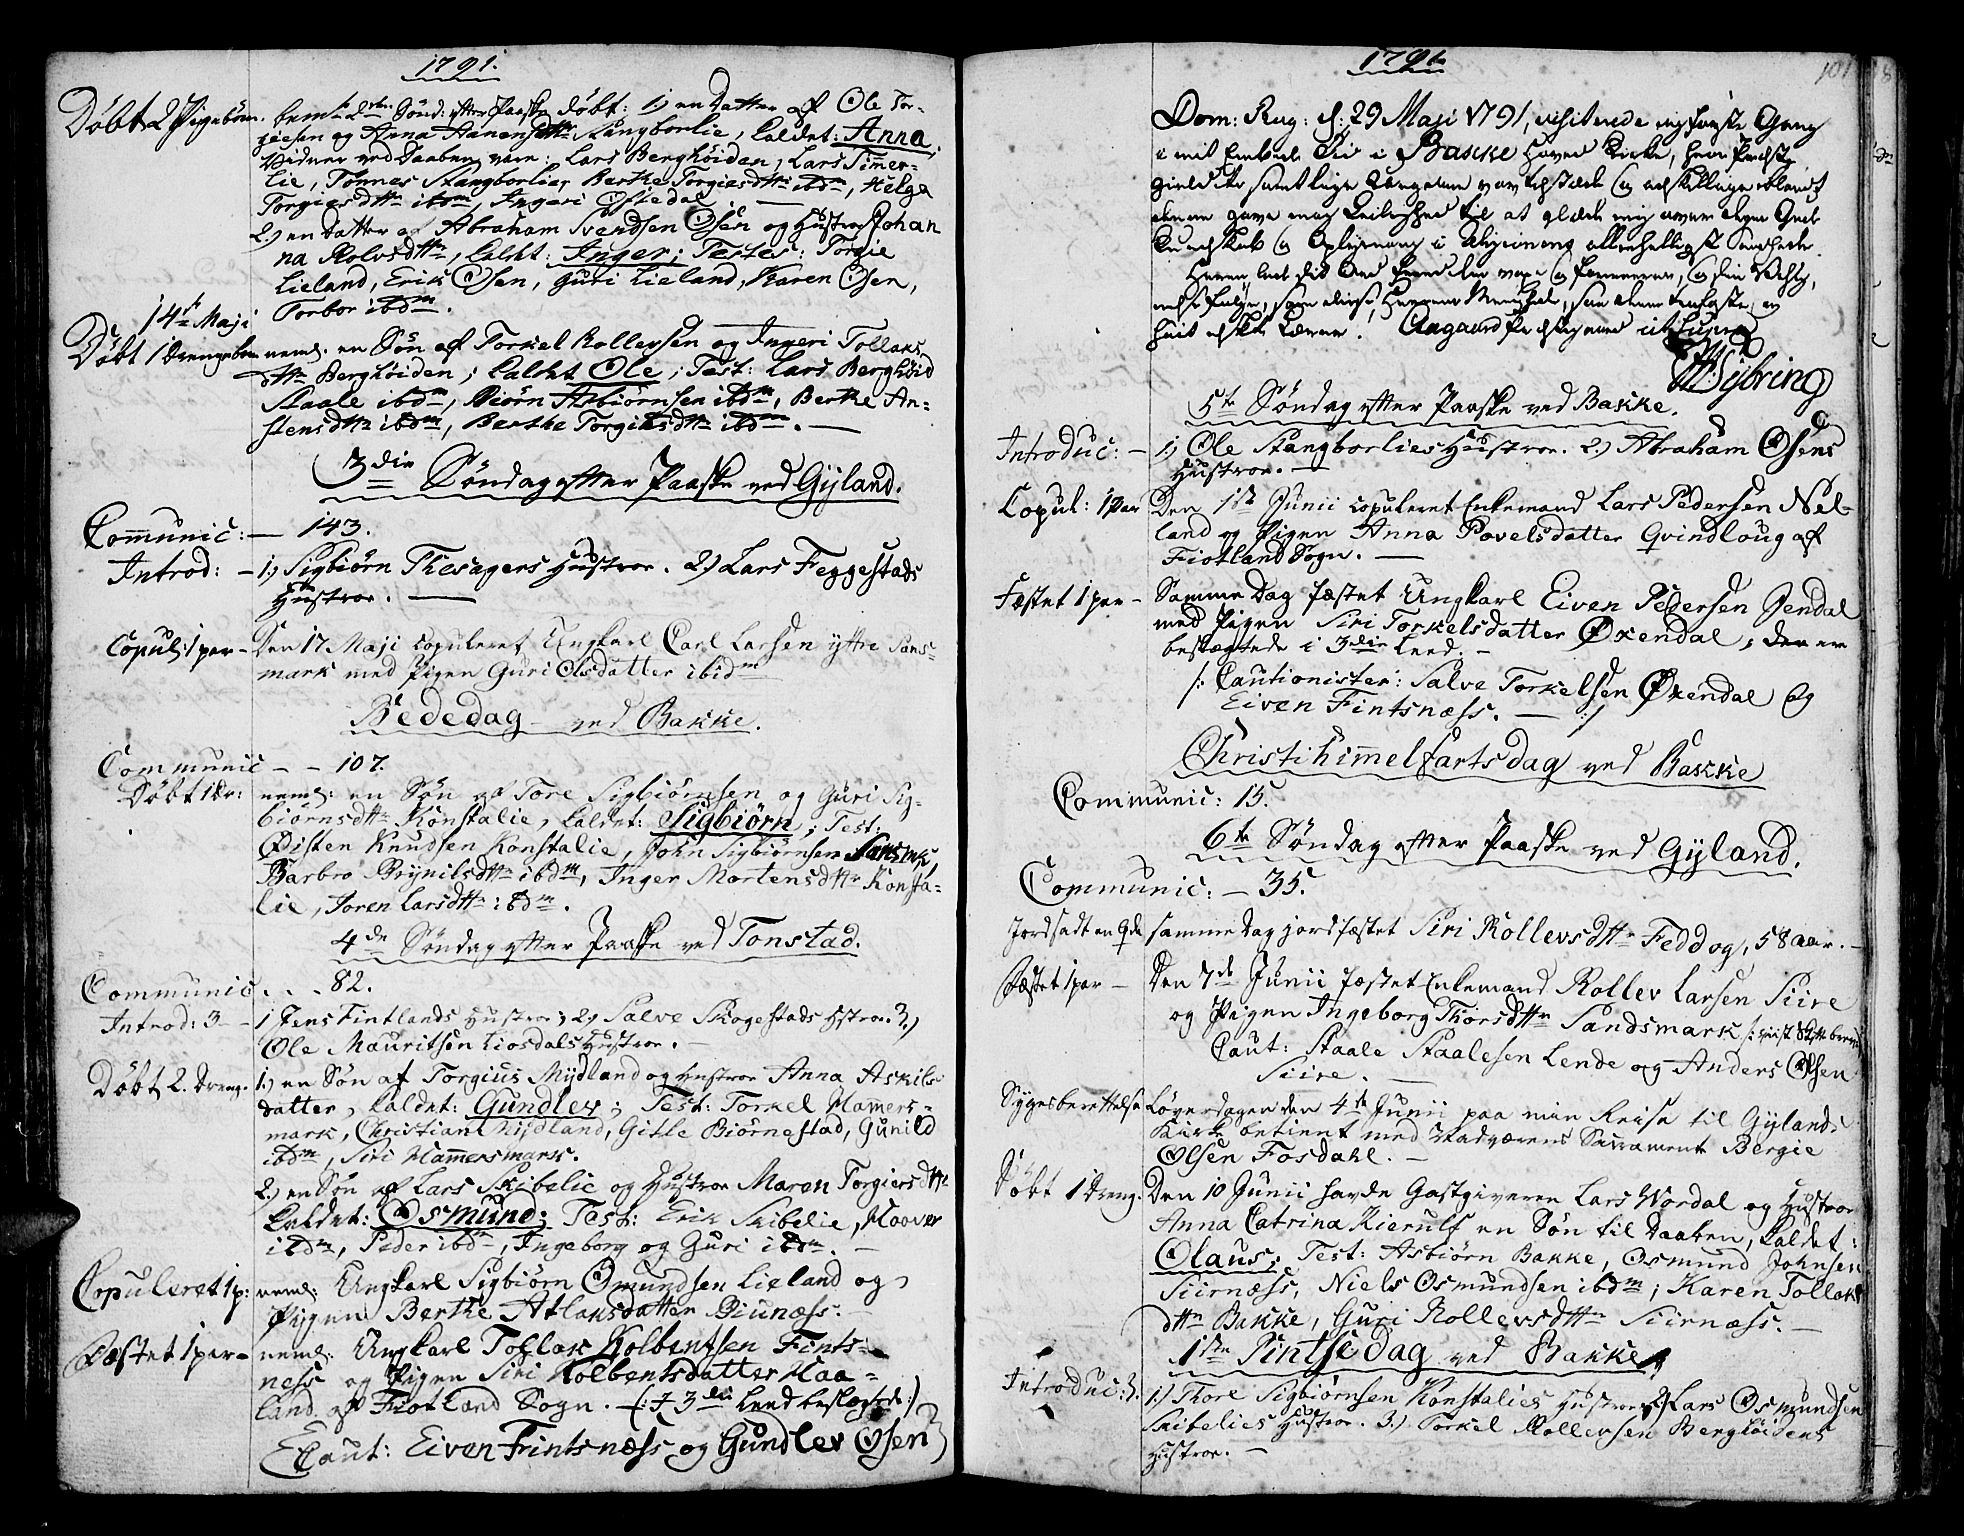 1791.
Døbt 2 Pigebørn. bem.te 2den Sønd: efter Paaske døbt: 1) en Datter af Ole Tor-
giesen og Anna Aanensdttr Stangborlie, kaldet: Anna,
Vidner ved Daaben vare: Lars Berghøiden, Lars Timmer-
lie, Tønnes Stangborlie, Berthe Torgiesdttr ibdm, Helga
Torgiesdttr ibdm, Ingeri Oftedal.
2.) en Datter af Abraham Svendsen Osen og Hustroe Johan
na Rolvsdttr, kaldet: Inger; Testes: Torgie
Lieland, Erik Osen, Guri Lieland, Karen Osen,
Torbor ibdm.
14de Maji
Døbt 1 drengebarn neml: en Søn af Torkel Rollevsen og Ingeri Tollaks
dttr Berghøiden; kaldet Ole; Test: Lars Berghøid
Staale ibdm, Biørn Asbiørnsen ibdm, Berthe An-
stensdttr ibdm, Berthe Torgiesdttr ibdm.
3die Søndag efter Paaske ved Gyland.
Communic: — 143.
Introd: — 1.) Sigbiørn Thesagers Hustroe. 2.) Lars Feggestads
Hustroe.
Copul: 1 par — Den 17 Maji copuleret Ungkarl Carl Larsen ytre Sans-
mark med Pigen Guri Olsdatter ibidm
Bededag ved Bakke.
Communic — 107.
Døbt 1 dr: neml: en Søn af Tore Sigbiørnsen og Guri Sig-
biørnsdttr Konstalie, kaldet: Sigbiørn; Test:
Østen Knudsen Konstalie, John Sigbiørnsen Sansmk,
Barbro Brynilsdttr ibdm, Inger Mortensdttr Konsta-
lie, Joren Larsdttr ibdm.
4de Søndag efter Paaske ved Tonstad.
Communic . . . 82.
Introd: 3 — 1) Jens Fintlands Hustroe; 2.) Salve Skogestads Hstroe. 3.)
Ole Mauritsen Liosdals Hustroe.
Døbt 2. dreng. 1.) en Søn af Torgius Mydland og Hustroe Anna Askils
datter, kaldet: Gundlev; Test: Torkel Hamers-
mark, Christian Mydland, Gitle Biørnestad, Gunild
ibdm, Siri Hamersmark.
2.) en Søn af Lars Skibelie og Hustroe Maren Torgiersdttr
kaldet: Osmund; Test: Erik Skibelie, Haaver
ibdm, Peder ibdm, Ingeborg og Guri ibdm.
Copuleret 1 p: neml: Ungkarl Sigbiørn Omundsen Lieland og
Pigen Berthe Atlaksdatter Biunæss.
Fæstet 1 par — neml: Ungkarl Tollak Kolbentsen Fints-
ness og Pigen Siri Kolbentsdatter Haa-
land af Fiotland Sogn. (: i 3die Leed beslægtede :)
Caut: Eiven Fintsnæss og Gundlev Osen
1791.
101
Dom: Rog: d: 29 Maji 1791, visiterede jeg første Gang
i mit Embede Her i Bakke Hoved Kirke, hvor Præste-
gieldets samtlige Ungdom var tilstede og adskillige iblandt
denne gave mig Leilighed til at glæde mig over deres Gode
Kundskab og Oplysning i Religionens allerhelligste Sandheder.
Aagaard Præstegaard ut Supra
Sybring
5te Søndag efter Paaske ved Bakke.
Introduc: — 1.) Ole Stangborlies Hustroe. 2.) Abraham Osens
Hustroe.
Copul: 1 par Den 1ste Junii copuleret Enkemand Lars Pedersen Nel-
land og Pigen Anna Povelsdatter Qvindloug af
Fiotland Sogn.
Fæstet 1 par — Samme Dag fæstet Ungkarl Eiven Pedersen Jendal
med Pigen Siri Torkelsdatter Øxendal, der er
beslægtede i 3die Leed.
/: Cautionister: Salve Torkelsen Øxendal og
Eiven Fintsnæss. :/
Christi himmelfartsdag ved Bakke
Communic: 15.
6te Søndag efter Paaske ved Gyland.
Communic: — 35.
Jordsadt en Qde samme Dag jordfæstet Siri Rollevsdttr Feddog, 58 aar.
Fæstet 1 par — Den 7de Junii fæstet Enkemand Rollev Larsen Siire
og Pigen Ingeborg Thorsdttr Sandsmark
Caut: Staale Staalesen Lende og Anders Olsen
Siire.
Sygesberettelse Løverdagen den 4de Junii paa min Reise til Gylands
Kirke betient med Nadverens Sacramente Bergie
Olsen Fosdahl.
Døbt 1 dreng. Den 10 Junii havde Gastgiveren Lars Wordal og Hustroe
Anna Catrina Kierulf en Søn til Daaben, kaldet:
Olaus; Test: Asbiørn Bakke, Osmund Johnsen
Siirnæss, Niels Osmundsen ibdm; Karen Tollaks
dttr Bakke, Guri Rollevsdttr Siirnæss.
1ste Pintse dag ved Bakke
Introduc: 3. 1.) Thore Sigbiørnsen Konstalies Hustroe 2.) Lars Osmundsen
Skibelies Hustroe. 3.) Torkel Rollevsen Berghøidens
Hustroe.